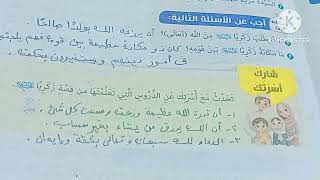 أجب عن الأسئلة التالية:
ماذا طلب زكريا من الله (تعالى)؟ أن يرزقه الله بولدًا صالحًا
ما مكانة زكريا بين قومه؟ كان ذو مكانة عظيمة بين قومه فهم يلجئون
في أمور دينهم ويستنيرون بحكمته
شارك
أسرتك
تحدث مع أسرتك عن الدروس التي تعلمتها من قصة زكريا
١- أن قدرة الله عظيمة ورحمته وسعت كل شيء
٢- أن الله يرزق من يشاء بغير حساب.
٣- الدعاء لله سبحانه وتعالى بثقة وإيمان
KINEMASTER